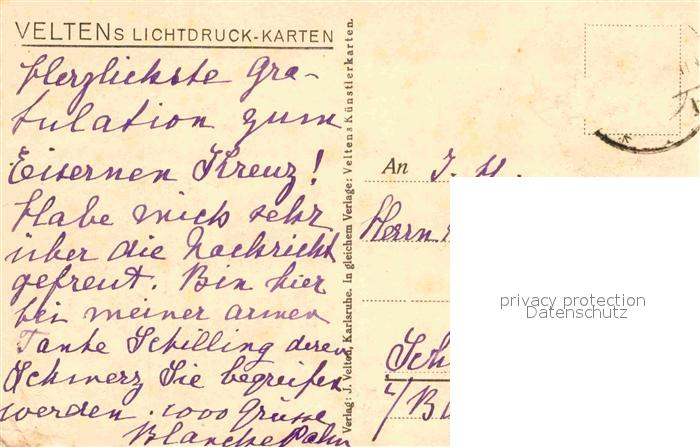 VELTENS LICHTDRUCK-KARTEN
Herzlichste Gra-
tulation zum
Eisernen Kreuz!
Habe mich sehr
über die Nachricht
gefreut. Bin hier
bei meiner armen
Tante Schilling deren
Schmerz Sie begreifen
werden. 1000 Grüsse
Blanche Palm
Verlag: J. Velten, Karlsruhe. In gleichem Verlage: Veltens Künstlerkarten.
An J. H.
Herrn
Sch
privacy protection
Datenschutz